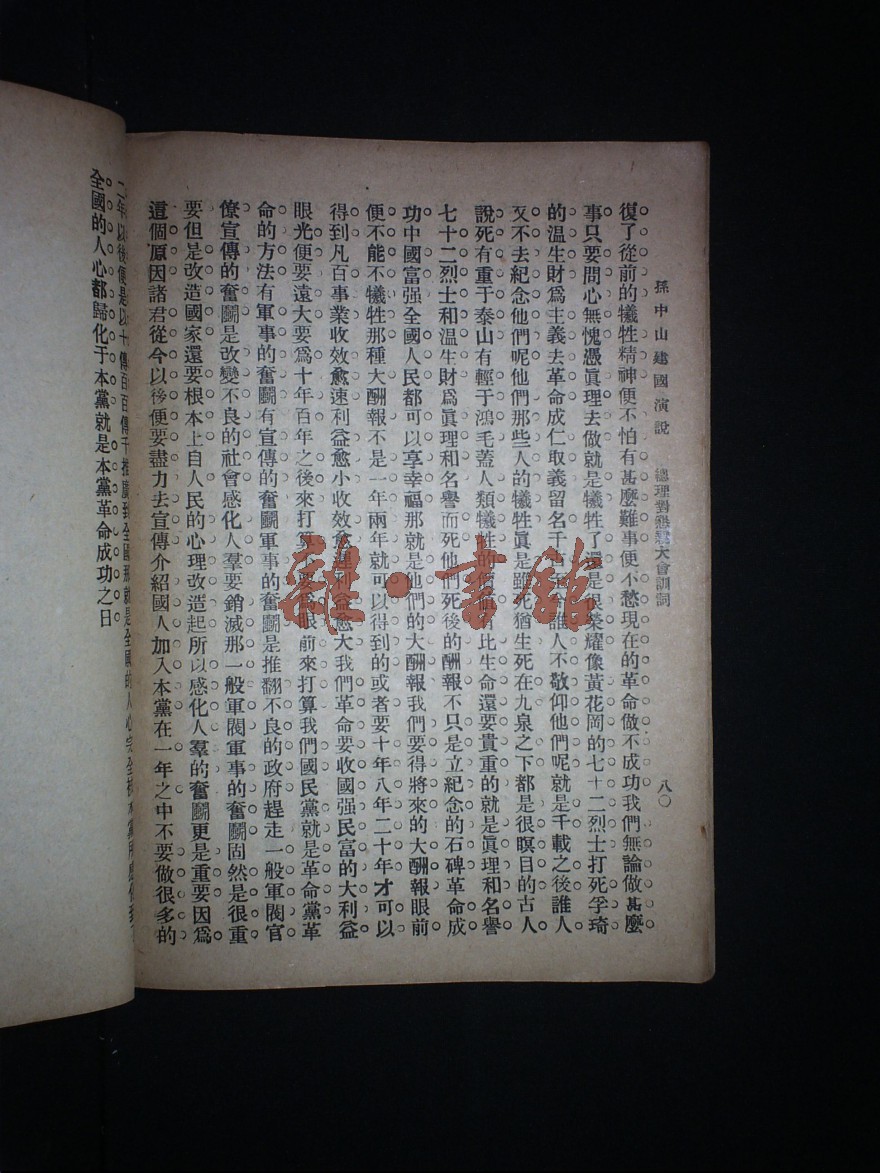 孫中山建國演說　總理對懇親大會訓詞　八〇
復了從前的犧牲精神便不怕有甚麼難事便不愁現在的革命做不成功我們無論做甚麼
事只要問心無愧憑眞理去做就是犧牲了還是很榮耀像黃花岡的七十二烈士打死孚琦
的溫生財爲主義去革命成仁取義留名千百年誰人不敬仰他們呢就是千載之後誰人
又不去紀念他們呢他們那些人的犧牲眞是雖死猶生死在九泉之下都是很瞑目的古人
說死有重于泰山有輕于鴻毛蓋人類犧牲的價値有比生命還要貴重的就是眞理和名譽
七十二烈士和溫生財爲眞理和名譽而死他們死後的酬報不只是立紀念的石碑革命成
功中國富强全國人民都可以享幸福那就是他們的大酬報我們要得將來的大酬報眼前
便不能不犧牲那種大酬報不是一年兩年就可以得到的或者要十年八年二十年才可以
得到凡百事業收效愈速利益愈小收效愈遲利益愈大我們革命要收國强民富的大利益
眼光便要遠大要爲十年百年之後來打算要爲眼前來打算我們國民黨就是革命黨革
命的方法有軍事的奮鬭有宣傳的奮鬭軍事的奮鬭是推翻不良的政府趕走一般軍閥官
僚宣傳的奮鬭是改變不良的社會感化人羣要銷滅那一般軍閥軍事的奮鬭固然是很重
要但是改造國家還要根本上自人民的心理改造起所以感化人羣的奮鬭更是重要因爲
這個原因諸君從今以後便要盡力去宣傳介紹國人加入本黨在一年之中不要做很多的
二年以後便是以十傳百百傳千推廣到全國那就是全國的人心完全
全國的人心都歸化于本黨就是本黨革命成功之日
龍·書館